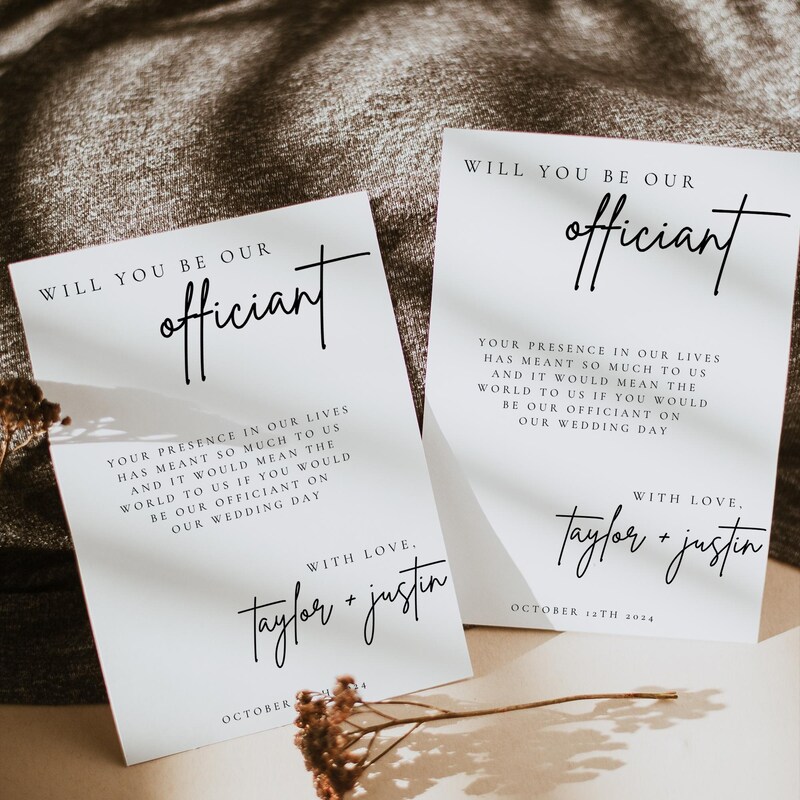 WILL YOU BE OUR
officiant
YOUR PRESENCE IN OUR LIVES
HAS MEANT SO MUCH TO US
AND IT WOULD MEAN THE
WORLD TO US IF YOU WOULD
BE OUR OFFICIANT ON
OUR WEDDING DAY
WITH LOVE,
taylor + justin
OCTOBER 24
WILL YOU BE OUR
officiant
YOUR PRESENCE IN OUR LIVES
HAS MEANT SO MUCH TO US
AND IT WOULD MEAN THE
WORLD TO US IF YOU WOULD
BE OUR OFFICIANT ON
OUR WEDDING DAY
WITH LOVE,
taylor + justin
OCTOBER 12TH 2024